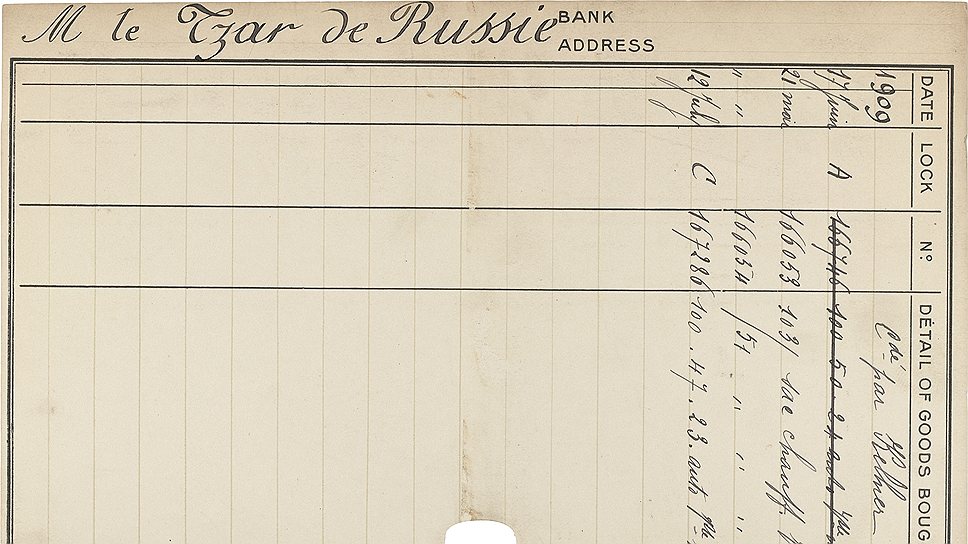 M le Tzar de Russie
BANK
ADDRESS
DATE LOCK Nº DÉTAIL OF GOODS BOUG
1909 Cdé par Kellner
17 Juin A 166746 100 50 24 auto 1ère
21 mai 166053 103/ sac chauff.
" " 166054 /51 " " "
12 July C 167286 100. 47. 23. auto 1ère